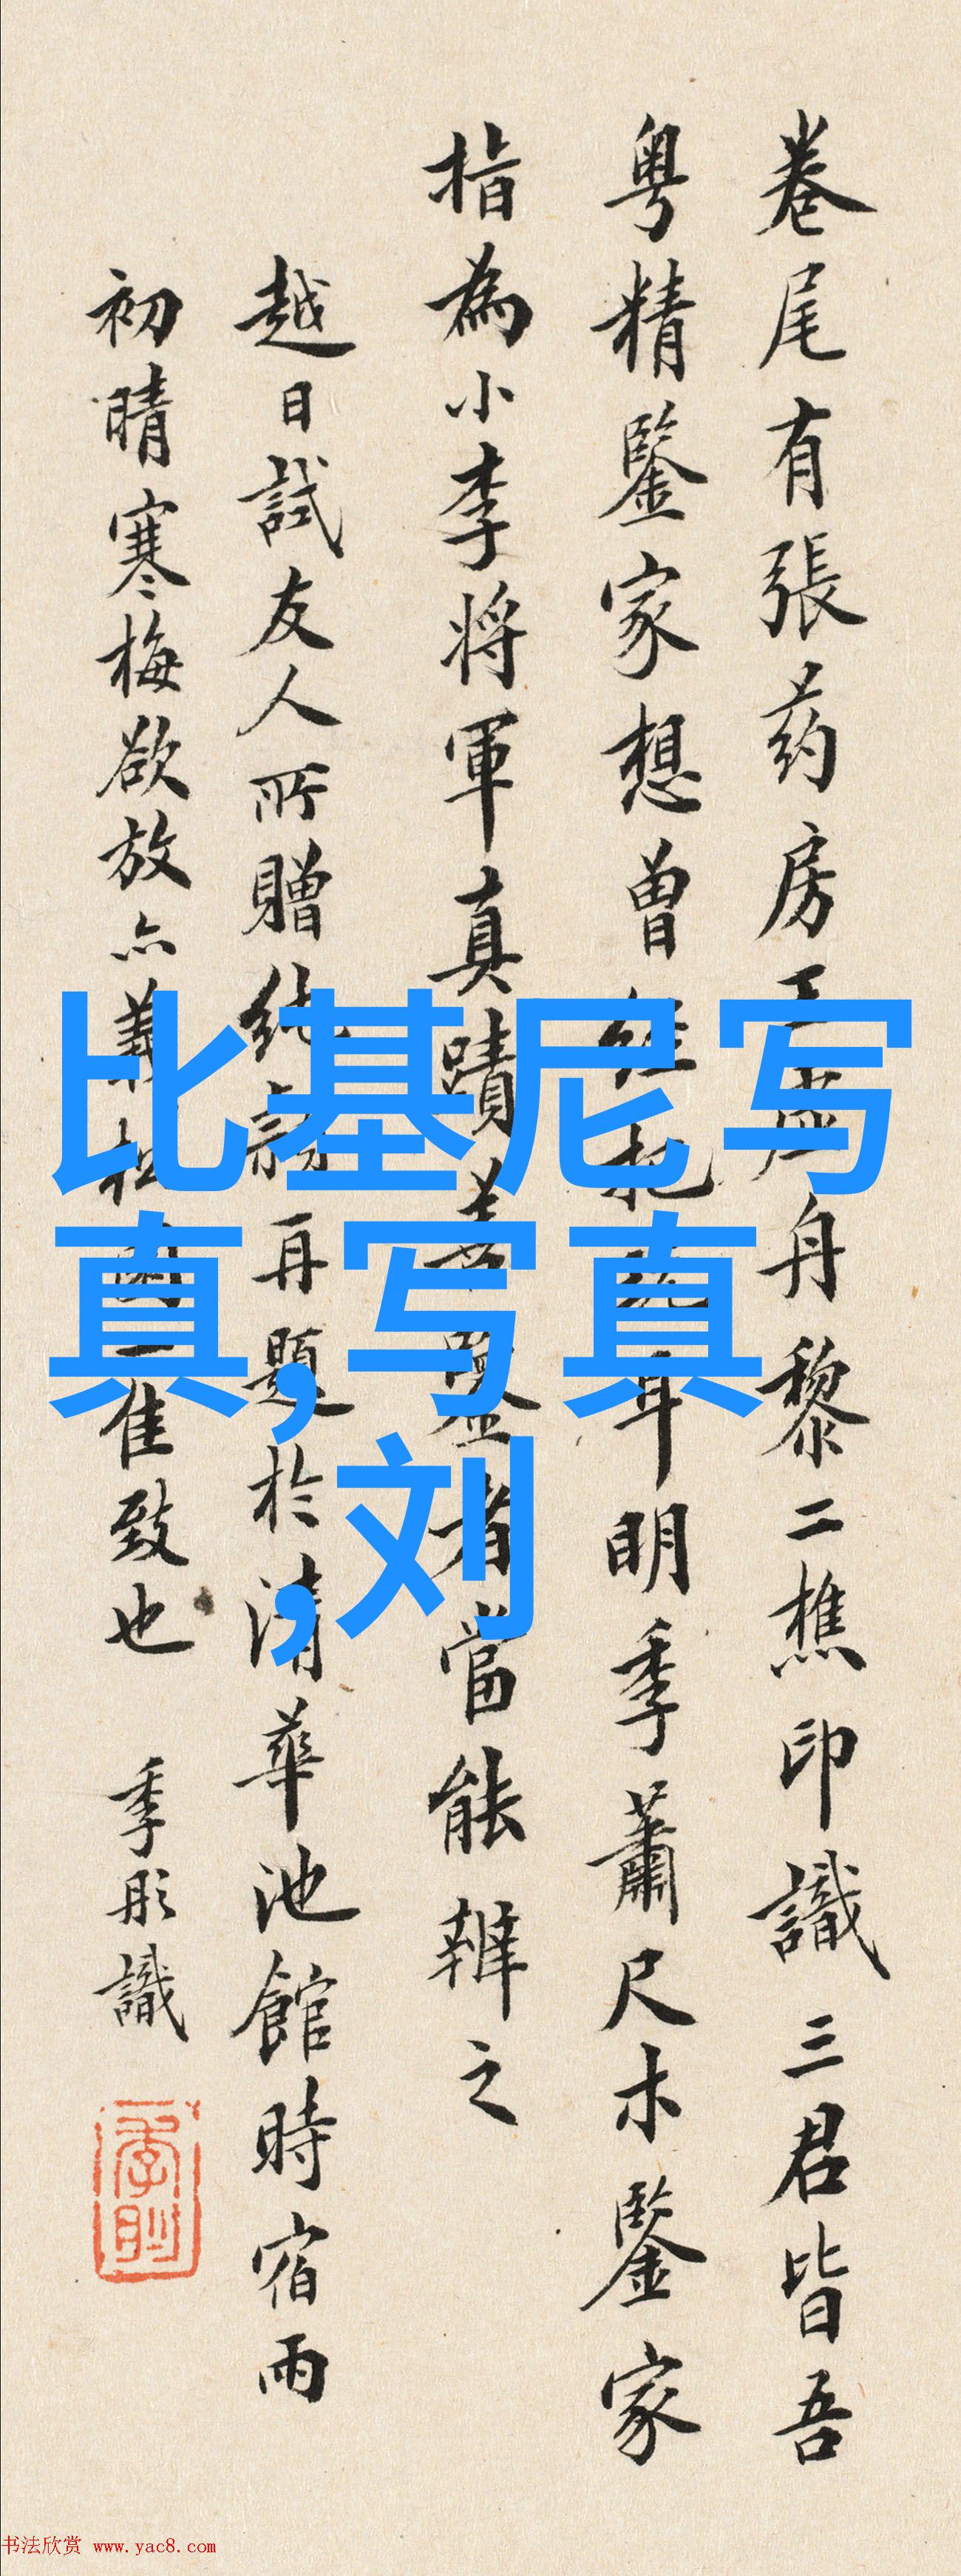 卷尾有張药房王虛舟黎二樵印識三君皆吾
粤精鑒家想曾經耳明季蕭尺木鑒家
指為小李将軍真蹟善鑒者當能辨之
越日試友人所贈純毫再題於清華池館時宿雨
初晴寒梅欲放亦一佳致也 季彤識
比基尼写
真,写真
,刘
书法欣赏 www.yac8.com